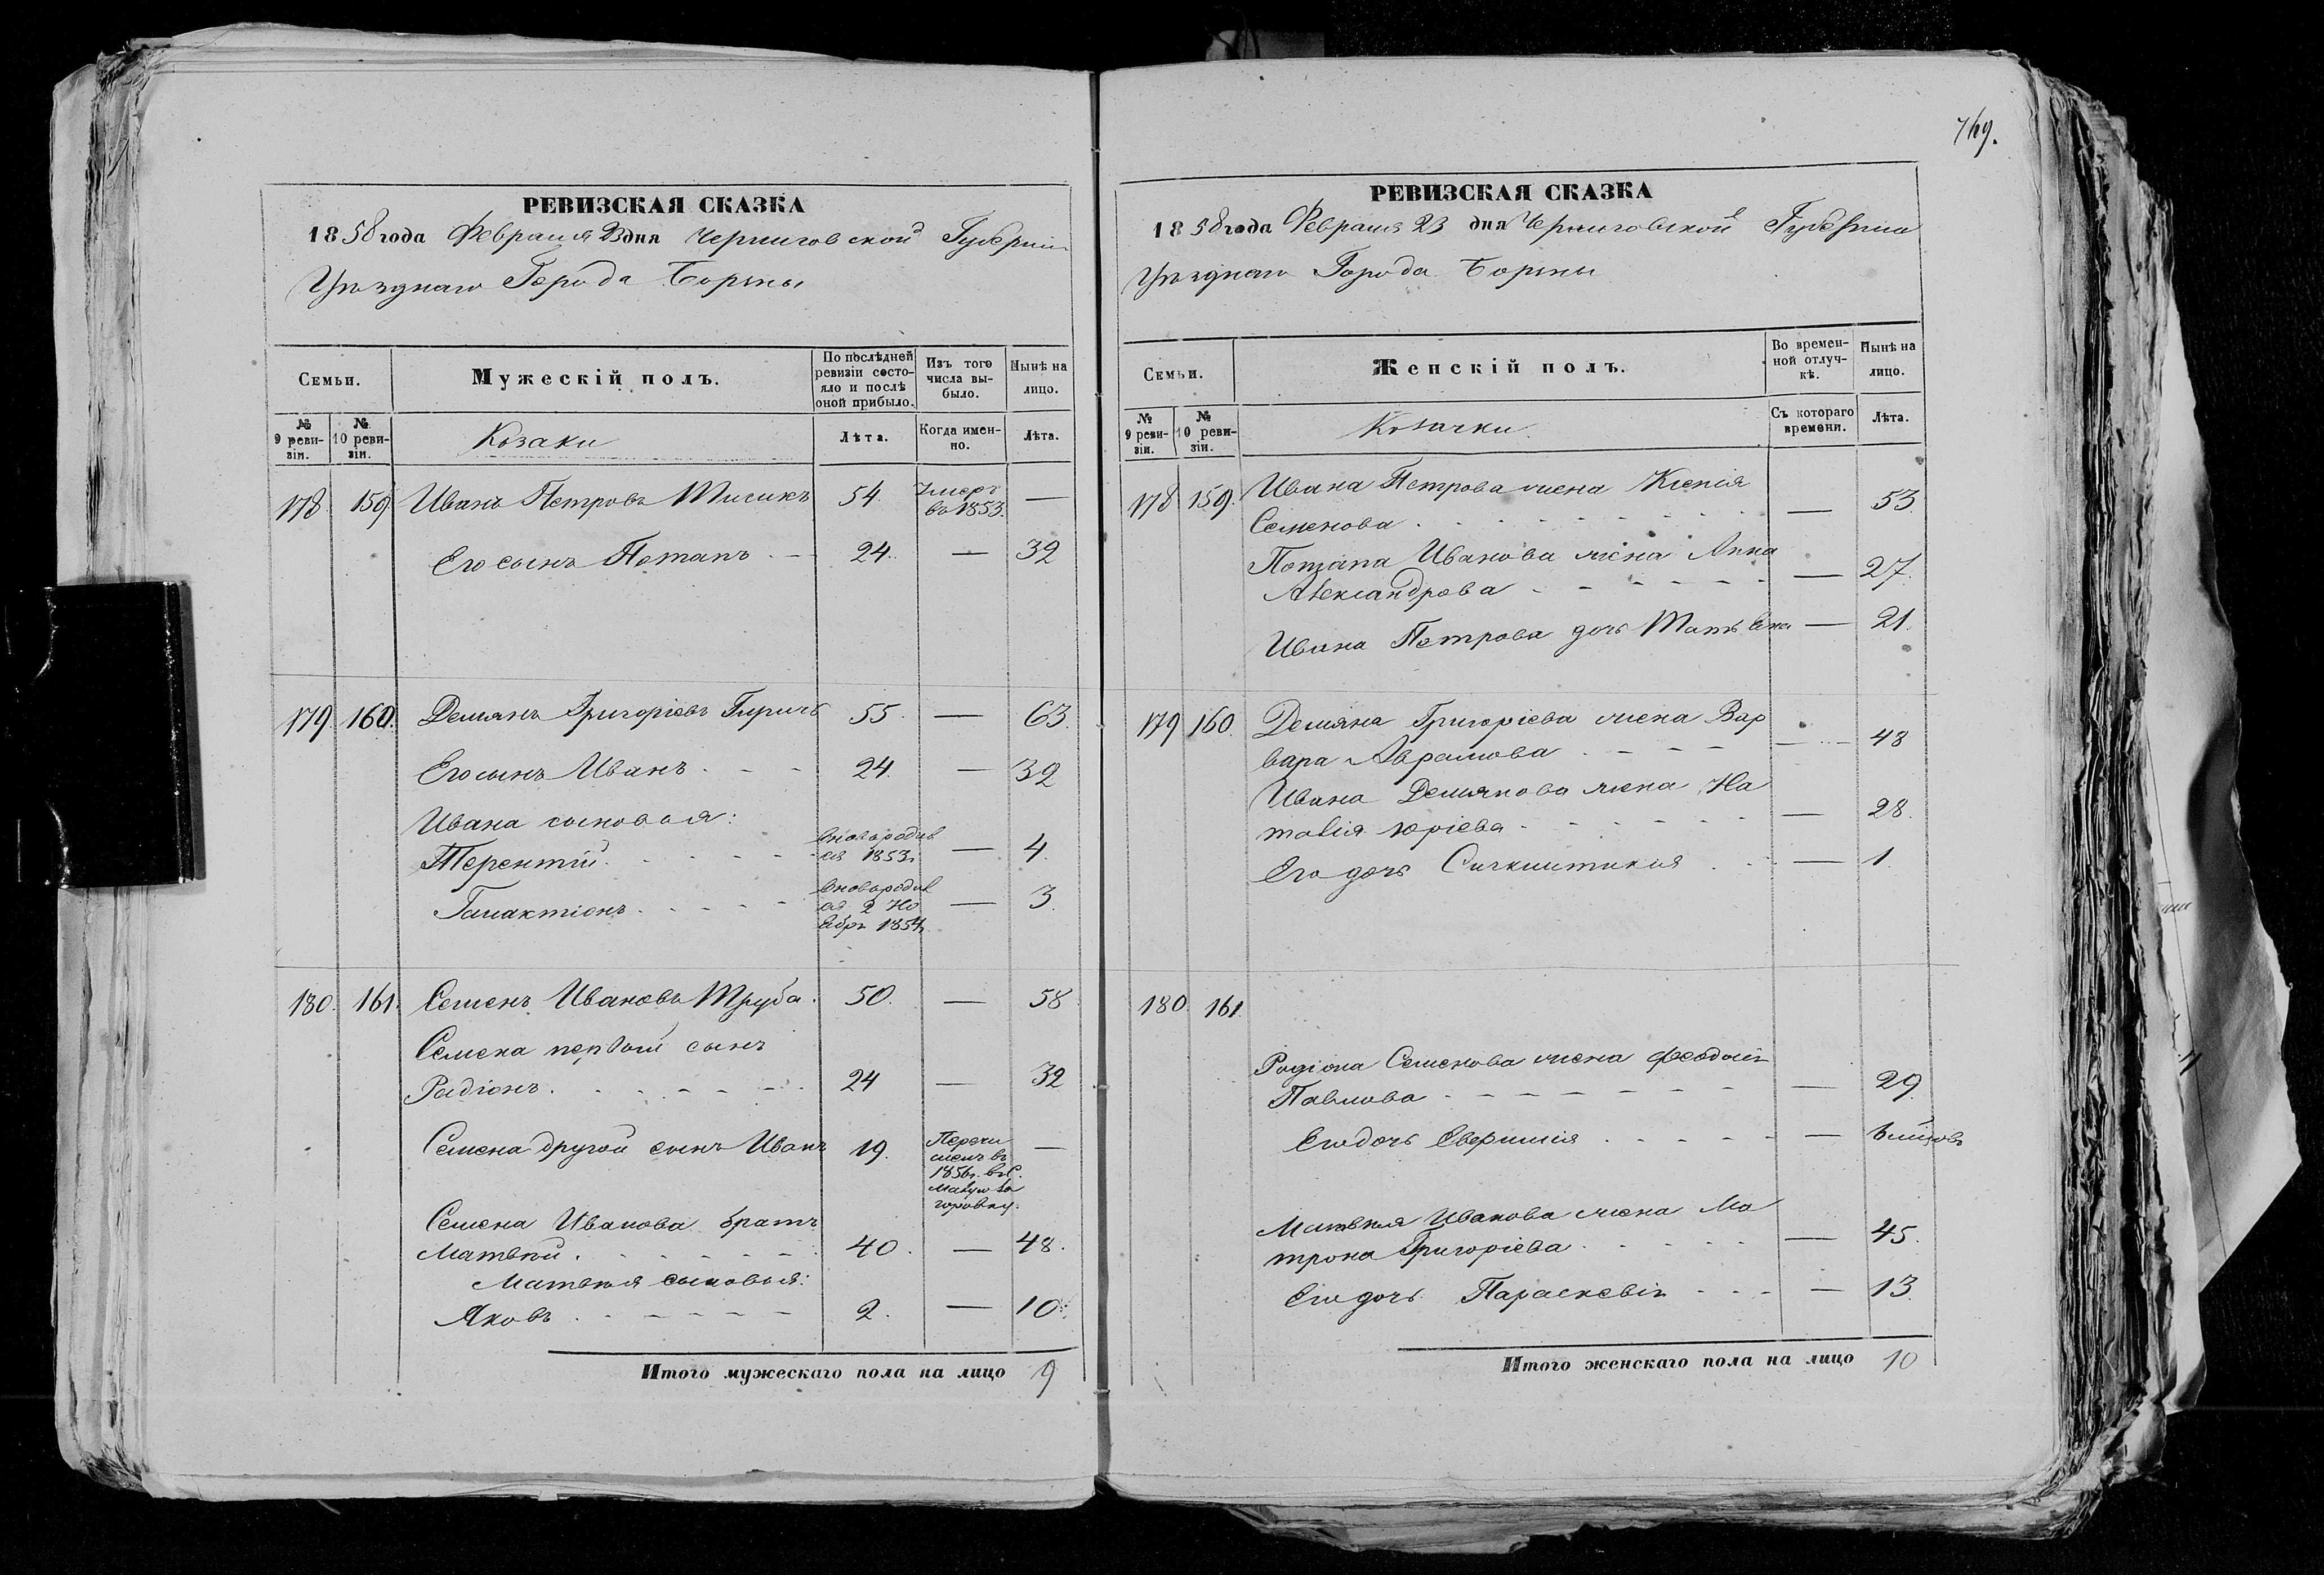 769.
РЕВИЗСКАЯ СКАЗКА
1858 года Февраля 23 дня Черниговской Губерніи
Уѣзднаго Города Борзны
Семьи.
Мужескій полъ.
По послѣдней ревизіи состояло и послѣ оной прибыло.
Изъ того числа выбыло.
Нынѣ на лицо.
№ 9 ревизіи.
№ 10 ревизіи.
Козаки
Лѣта.
Когда именно.
Лѣта.
178 159. Иванъ Петровъ 54. Умеръ —
въ 1853.
Его сынъ Потапъ 24. — 32
179 160. Демянъ Григорієвъ 55. — 63.
Его сынъ Иванъ 24. — 32
Ивана сыновья:
Терентій вновь родив
ся 1853г. — 4.
Галактіонъ вновь родив
ся 2 Но
ября 1854г. — 3.
180. 161. Семенъ Ивановъ Труба. 50. — 58
Семена первый сынъ
Радіонъ 24 — 32
Семена другой сынъ Иванъ 19. Перечи
сленъ въ —
1856г. в с.
Малую За
горовку.
Семена Иванова братъ
Матвѣй 40. — 48.
Матвѣя сыновья:
Яковъ 2. — 10.
Итого мужескаго пола на лицо 9
РЕВИЗСКАЯ СКАЗКА
1858 года Февраля 23 дня Черниговской Губерніи
Уѣзднаго Города Борзны
Семьи.
Женскій полъ.
Во временной отлучкѣ.
Нынѣ на лицо.
№ 9 ревизіи.
№ 10 ревизіи.
Козачки
Съ котораго времени.
Лѣта.
178 159. Ивана Петрова жена Ксенія
Семенова — 53
Потапа Иванова жена Анна
Александрова — 27.
Ивана Петрова дочь — 21.
179 160. Демяна Григорієва жена Вар
вара Аврамова — 48
Ивана Демянова жена На
талія Юрієва — 28.
Его дочь — 1.
180 161
Родіона Семенова жена Феодосія
Павлова — 29.
Его дочь —
Матвѣя Иванова жена Ма
трона Григорієва — 45.
Его дочь Параскевія — 13.
Итого женскаго пола на лицо 10